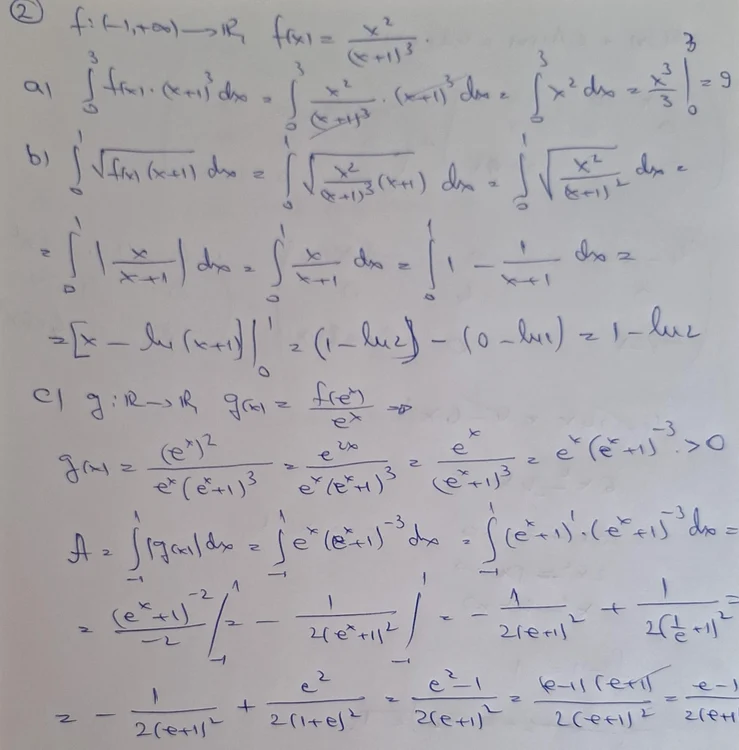 ② f:(-1,+∞)→ℝ, f(x) = x²/(x+1)³.
a) ∫₀³ f(x)·(x+1)³ dx = ∫₀³ x²/(x+1)³ · (x+1)³ dx = ∫₀³ x² dx = x³/3 |₀³ = 9
b) ∫₀¹ √(f(x)(x+1)) dx = ∫₀¹ √(x²/(x+1)³ (x+1)) dx = ∫₀¹ √(x²/(x+1)²) dx =
= ∫₀¹ |x/(x+1)| dx = ∫₀¹ x/(x+1) dx = ∫₀¹ 1 - 1/(x+1) dx =
= [x - ln(x+1)] |₀¹ = (1-ln2) - (0-ln1) = 1-ln2
c) g:ℝ→ℝ, g(x) = f(eˣ)/eˣ ⇒
g(x) = (eˣ)²/(eˣ(eˣ+1)³) = e²ˣ/(eˣ(eˣ+1)³) = eˣ/(eˣ+1)³ = eˣ(eˣ+1)⁻³ > 0
A = ∫₋₁¹ |g(x)| dx = ∫₋₁¹ eˣ(eˣ+1)⁻³ dx = ∫₋₁¹ (eˣ+1)'·(eˣ+1)⁻³ dx =
= (eˣ+1)⁻²/-2 |₋₁¹ = - 1/(2(eˣ+1)²) |₋₁¹ = - 1/(2(e+1)²) + 1/(2(1/e+1)²) =
= - 1/(2(e+1)²) + e²/(2(1+e)²) = (e²-1)/(2(e+1)²) = (e-1)(e+1)/(2(e+1)²) = (e-1)/(2(e+1